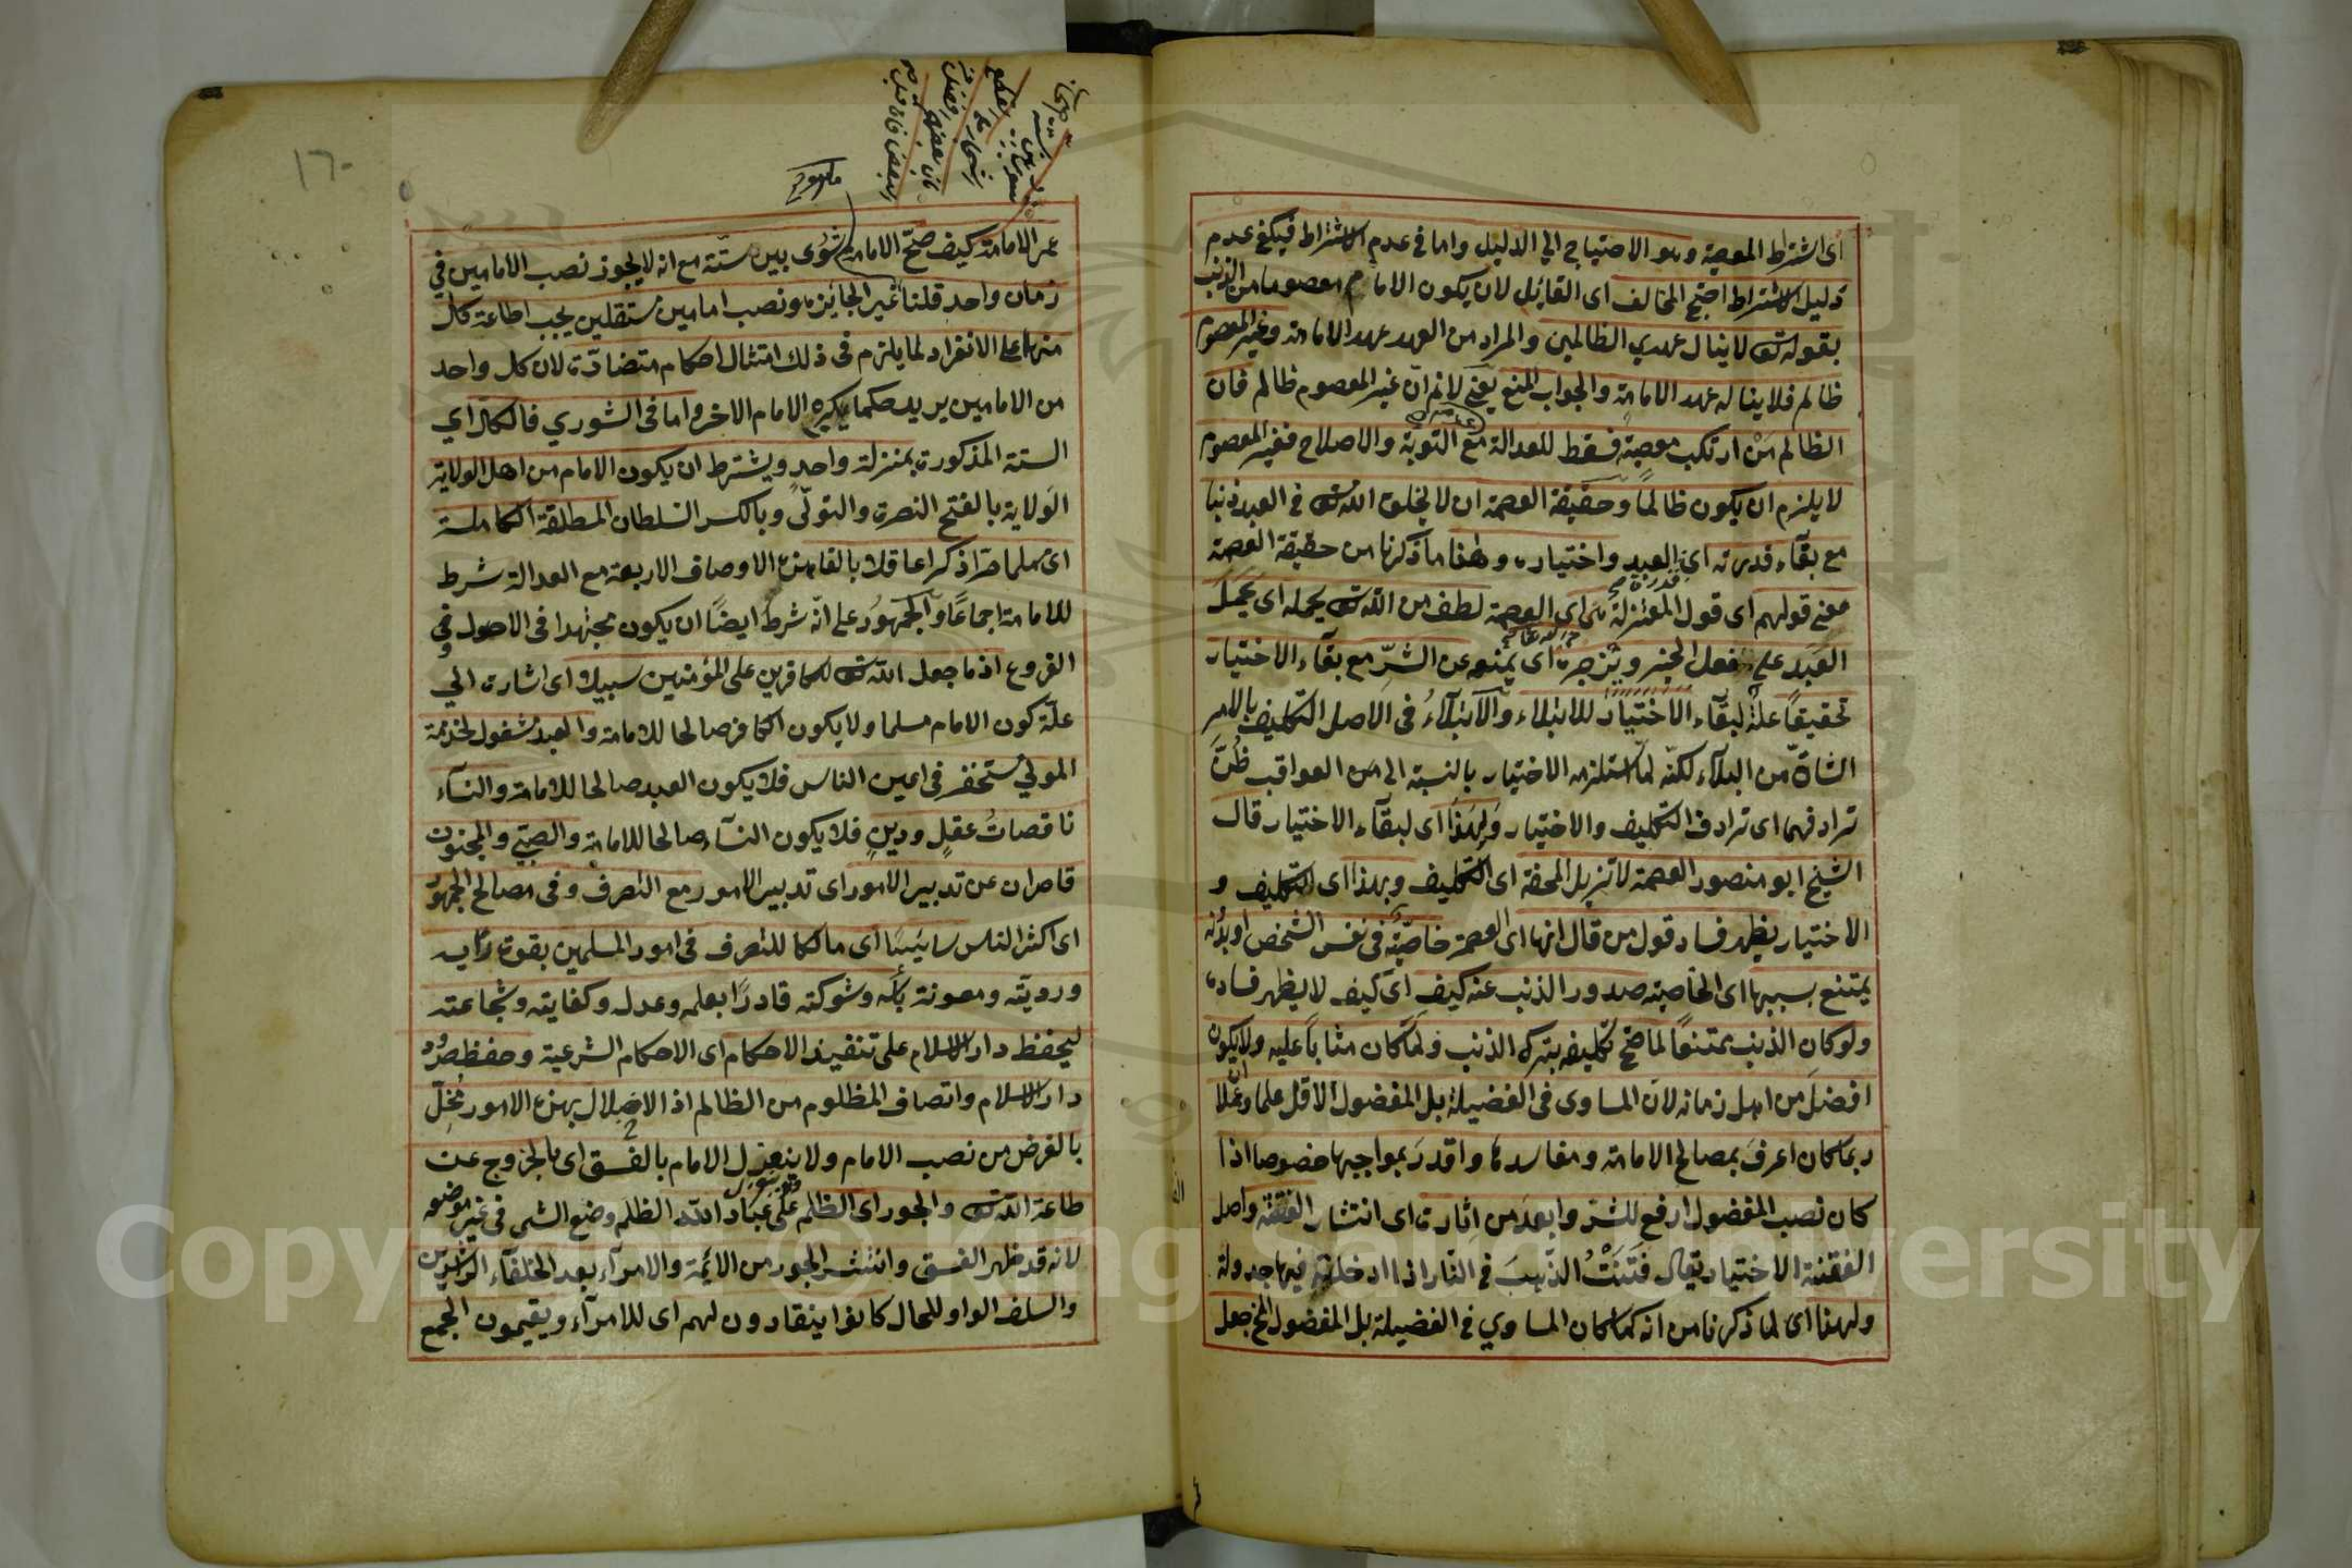 اى اشتراط المعصية وهو الاحتياج الي الدليل واما في عدم الاشتراط فيكفي عدم
دليل الاشتراط احتج المخالف اى القائل لان يكون الامام معصوما من الذنب
بقوله تع لا ينال عهدي الظالمين والمراد من العهد عهد الامامة وغير المعصوم
ظالم فلا يناله عهد الامامة والجواب المنع يعني لانم انّ غير المعصوم ظالم فان
الظالم مَنْ ارتكب معصية فسقط للعدالة مع التوبة والاصلاح فغير المعصوم
لا يلزم ان يكون ظالمًا وحقيقة العصمة ان لا يخلق الله تع في العبد ذنبا
مع بقآء قدرته اى العبد واختياره وهذا ما ذكرنا من حقيقة العصمة
معنے قولهم اى قول المعتزلة هى اى العصمة لطف من الله تع يحمله اى يحمل
العبد على فعل الخير وتزجره اى يمنعه عن الشرّ مع بقآء الاختيار
تحقيقًا علة لبقآء الاختيار للابتلاء والابتلآءُ فى الاصل التكليف بالامر
الشاقّ من البلآء لكنّه لما استلزم الاختيار بالنسبة الى من العواقب ظُنَّ
ترادفهما اى ترادف التكليف والاختيار ولهذا اى لبقآء الاختيار قال
الشيخ ابو منصور العصمة لا تزيل المحنة اى التكليف وبهذا اى التكليف و
الاختيار يظهر فساد قول من قال انها اى العصمة خاصيّة فى نفس الشخص او بدنه
يمتنع بسببها اى الخاصية صدور الذنب عنه كيف اى كيف لا يظهر فساده
ولو كان الذنب ممتنعًا لما صح تكليفه بترك الذنب ولما كان مثابًا عليه ولا يكون
افضل من اهل زمانه لان المساوى فى الفضيلة بل المفضول الاقل علما وعملا
ربما كان اعرفَ بمصالح الامامة ومفاسدها واقدرَ بمواجبها خصوصا اذا
كان نصب المفضول ارفع للشر وابعد من اثارة اى انتشار الفتنة واصل
الفتنة الاختيار يقال فَتَنْتُ الذّهبَ في النّار اذا ادخلته فيها جدولة
ولهذا اى لما ذكرنا من انه كما كان المساوي في الفضيلة بل المفضول الخ جعل
ما هو
عمر الامامة كيف صحّ الامامة شورى بين ستّة مع انه لا يجوز نصب الامامين فى
زمان واحد قلنا غير الجائز هو نصب امامين مستقلين يجب اطاعة كل
منهما على الانفراد لما يلزم فى ذلك امتثال احكام متضادّة لان كل واحد
من الامامين يريد حكما يكره الامام الاخر واما فى الشورى فالكل اي
الستة المذكورة بمنزلة واحدٍ ويشترط ان يكون الامام من اهل الولاية
الوَلاية بالفتح النصرة والتولّى وبالكسر السلطان المطلقة الكاملة
اى مسلما حرّا ذكرا عاقلا بالغا هذه الاوصاف الاربعة مع العدالة شرط
للامامة اجماعًا والجمهور على انّه شرط ايضًا ان يكون مجتهدا فى الاصول وفي
الفروع اذ ما جعل الله تع للكافرين على المؤمنين سبيلا اى اشارة الي
علّة كون الامام مسلما ولا يكون الكافر صالحا للامامة والعبد مشغول لخدمة
المولي مستحقر فى اعين الناس فلا يكون العبد صالحا للامامة والنسآء
ناقصاتُ عقلٍ ودينٍ فلا يكون النسآء صالحا للامامة والصبىّ والمجنون
قاصران عن تدبير الامور اى تدبير الامور مع التصرف وفى مصالح الجمهور
اى اكثر الناس سائسًا اى مالكا للتصرف فى امور المسلمين بقوة رأيه
ورويته ومعونة بأسه وشوكته قادرًا بعلمه وعدله وكفايته وشجاعته
ليحفظ دار الاسلام على تنفيذ الاحكام اى الاحكام الشرعية وحفظ حدود
دار الاسلام وانتصاف المظلوم من الظالم اذ الاخلال بهذه الامور مُخِلّ
بالغرض من نصب الامام ولا ينعزل الامام بالفسق اى بالخروج عن
طاعة الله تع والجور اى الظلم على عباد الله الظلم وضع الشى فى غير موضعه
لانه قد ظهر الفسق وانتشر الجور من الائمّة والامرآء بعد الخلفآء الراشدين
والسلف الواو للحال كانوا ينقادون لهم اى للامرآء ويقيمون الجمع
Copyright © King Saud University